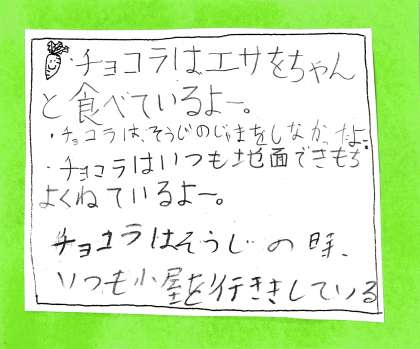 ・チョコラは、エサをちゃん
と食べているよー。
・チョコラは、そうじのじゃまをしなかったよー。
・チョコラはいつも地面できもち
よくねているよー。
チョコラはそうじの時、
いつも小屋を行ききしている